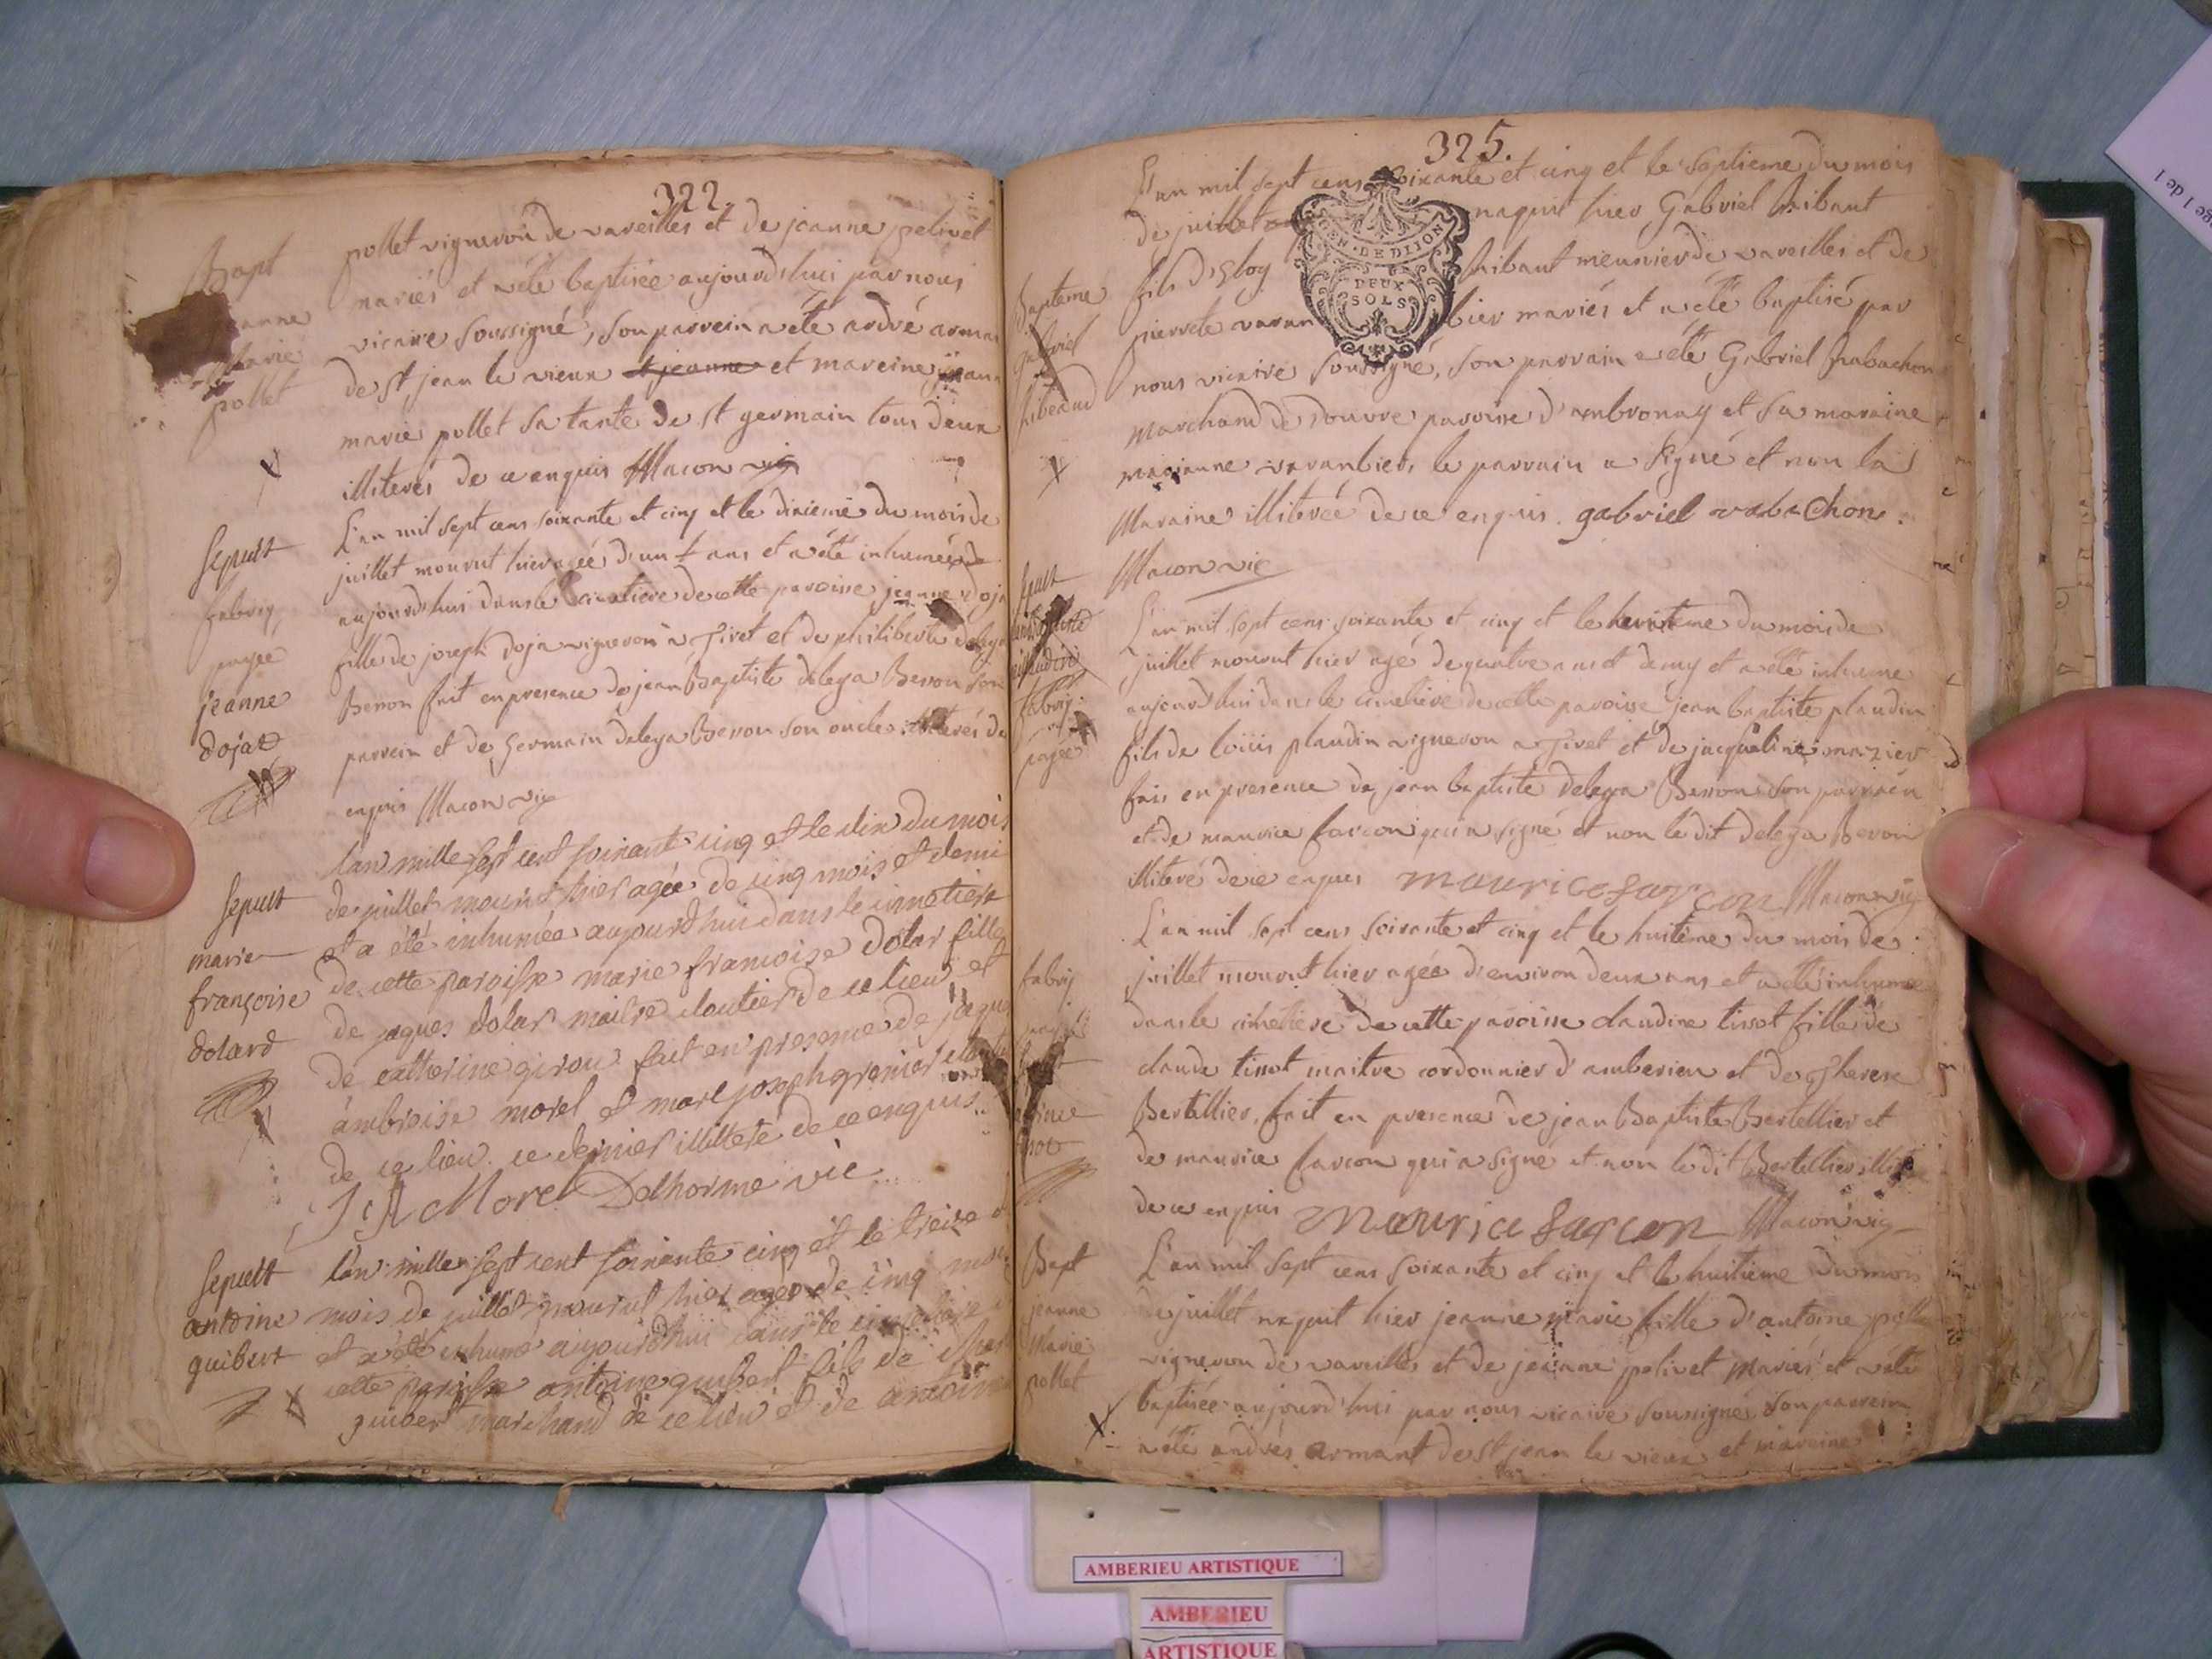 322.
Bapt
anne
marie
pollet
pollet vigneron de vareilles et de jeanne pelivet
mariés et a été baptisée aujourd'hui par nous
vicaire soussigné, son parrein a été andré arman
de st jean le vieux et mareine jeann
marie pollet sa tante de st germain tous deux
illiterés de ce enquis Macon vic
Sepult
fabriq
payée
jeanne
dojat
L'an mil sept cens soixante et cinq et le dixieme du mois de
juillet mourut hier agée d'un ans et a été inhumée
aujourd'hui dans le cimetiere de cette paroisse jeanne doja
fille de joseph doja vigneron a Tiret et de philiberte delega
Benon fait en presence de jean Baptiste delega Benon son
parrein et de germain delega Benon son oncle illiterés de
enquis Macon vic
Sepult
marie
françoise
dolard
lan mille sept cent soixante cinq et le dix du mois
de juillet mourut hier agée de cinq mois et demi
et a été inhumée aujourd'hui dans le cimetiere
de cette paroisse marie francoise dolar fille
de jaques dolar maitre cloutier de ce lieu et
de catherine girou fait en presence de jaque
ambroise morel et marc joseph grenier
de ce lieu ce dernier illitere de ce enquis
J A Morel Delhorme vic
Sepult
antoine
guibert
lan mille sept cent soixante cinq et le treize d
mois de juillet mourut hier agé de cinq mois
et a été inhumé aujourd'hui dans le cimetiere
cette paroisse antoine guibert fils de
guibert marchand de ce lieu et de antoine
325.
L'an mil sept cens soixante et cinq et le septieme du mois
de juillet naquit hier Gabriel hibaut
fils d'Eloy hibaut meunier de vareilles et de
pierrete varan bier mariés et a été baptisé par
GEN. DE DIJON
DEUX
SOLS
Bapteme
gabriel
hibeaud
nous vicaire soussigné, son parrain a été Gabriel Rabachon
marchand de douvre paroisse d'ambronay et sa maraine
marianne varanbier, le parrain a signé et non la
Maraine illiterée de ce enquis. gabriel rabachon.
Macon vic
Sepult
fabriq
payée
L'an mil sept cens soixante et cinq et le huitieme du mois de
juillet mourut hier agé de quatre ans et demy et a été inhumé
aujourd'hui dans le cimetiere de cette paroisse jean baptiste plaudin
fils de loüis plaudin vigneron a Tiret et de jacqueline mazier
fais en presence de jean baptiste delega Benon son parrein
et de maurice farcon qui a signé et non le dit delega Benon
illiteré de ce enquis mauricefarcon Macon vic
fabriq
L'an mil sept cens soixante et cinq et le huitieme du mois de
juillet mourut hier agée d'environ deux ans et a été inhumée
dans le cimetiere de cette paroisse claudine tissot fille de
claude tissot maitre cordonnier d'amberieu et de Therese
Bertellier, fait en presence de jean Baptiste Bertellier et
de maurice farcon qui a signé et non le dit Bertellier
de ce enquis Maurice farcon Macon vic
Bapt
jeanne
Marie
pollet
L'an mil sept cens soixante et cinq et le huitieme du mois
de juillet naquit hier jeanne marie fille d'antoine pollet
vigneron de vareilles et de jeanne pelivet mariés et a été
baptisée aujourd'hui par nous vicaire soussigné, son parrein
a été andrés armant de st jean le vieux et mareine
AMBERIEU ARTISTIQUE
AMBERIEU
ARTISTIQUE